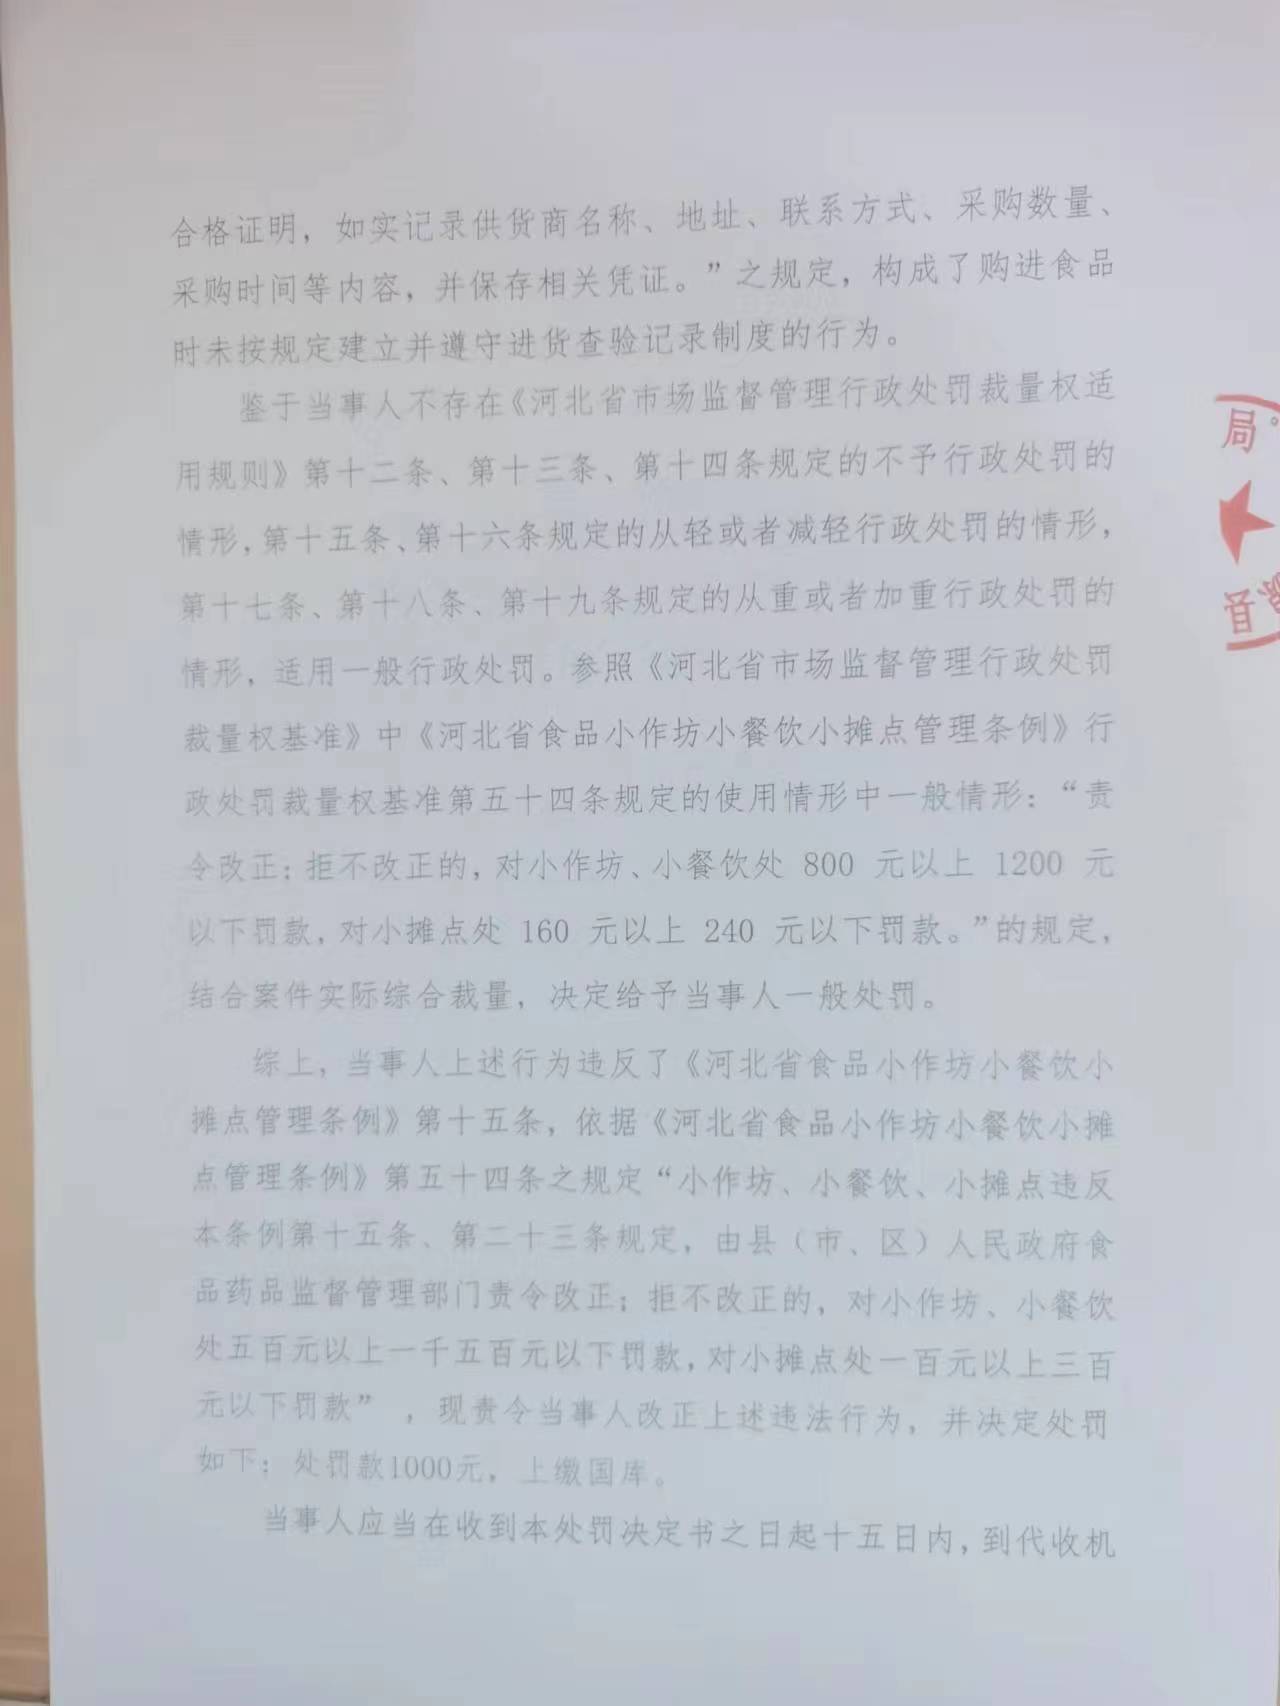 合格证明，如实记录供货商名称、地址、联系方式、采购数量、
采购时间等内容，并保存相关凭证。”之规定，构成了购进食品
时未按规定建立并遵守进货查验记录制度的行为。
鉴于当事人不存在《河北省市场监督管理行政处罚裁量权适
用规则》第十二条、第十三条、第十四条规定的不予行政处罚的
情形，第十五条、第十六条规定的从轻或者减轻行政处罚的情形，
第十七条、第十八条、第十九条规定的从重或者加重行政处罚的
情形，适用一般行政处罚。参照《河北省市场监督管理行政处罚
裁量权基准》中《河北省食品小作坊小餐饮小摊点管理条例》行
政处罚裁量权基准第五十四条规定的使用情形中一般情形：“责
令改正；拒不改正的，对小作坊、小餐饮处 800 元以上 1200 元
以下罚款，对小摊点处 160 元以上 240 元以下罚款。”的规定，
结合案件实际综合裁量，决定给予当事人一般处罚。
综上，当事人上述行为违反了《河北省食品小作坊小餐饮小
摊点管理条例》第十五条，依据《河北省食品小作坊小餐饮小摊
点管理条例》第五十四条之规定“小作坊、小餐饮、小摊点违反
本条例第十五条、第二十三条规定，由县（市、区）人民政府食
品药品监督管理部门责令改正；拒不改正的，对小作坊、小餐饮
处五百元以上一千五百元以下罚款，对小摊点处一百元以上三百
元以下罚款” ，现责令当事人改正上述违法行为，并决定处罚
如下：处罚款1000元，上缴国库。
当事人应当在收到本处罚决定书之日起十五日内，到代收机
局